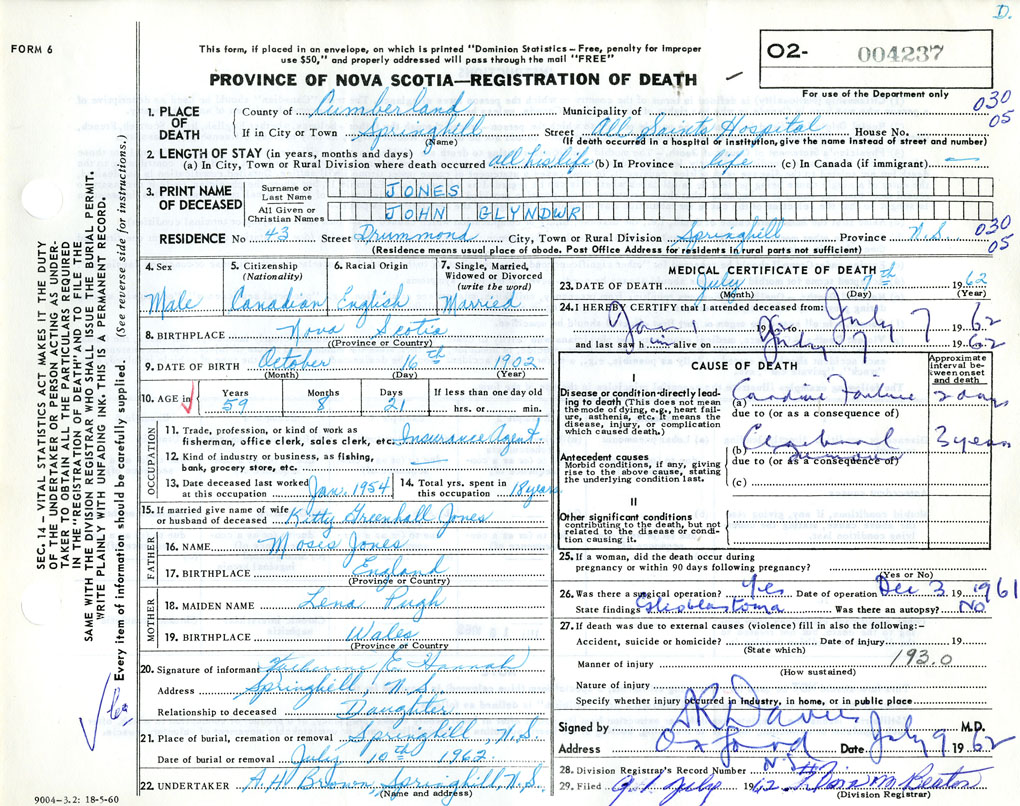 D.
FORM 6
This form, if placed in an envelope, on which is printed "Dominion Statistics—Free, penalty for improper
use $50," and properly addressed will pass through the mail "FREE"
PROVINCE OF NOVA SCOTIA—REGISTRATION OF DEATH
O2- 004237
For use of the Department only
030
05
1. PLACE OF DEATH County of Cumberland Municipality of
If in City or Town Springhill Street All Saints Hospital House No.
(Name) (If death occurred in a hospital or institution, give the name instead of street and number)
2. LENGTH OF STAY (in years, months and days)
(a) In City, Town or Rural Division where death occurred all his life (b) In Province life (c) In Canada (if immigrant) —
3. PRINT NAME OF DECEASED Surname or Last Name JONES
All Given or Christian Names JOHN GLYNDWR
030
05
RESIDENCE No 43 Street Drummond City, Town or Rural Division Springhill Province N.S.
(Residence means usual place of abode. Post Office Address for residents in rural parts not sufficient)
4. Sex Male
5. Citizenship (Nationality) Canadian
6. Racial Origin English
7. Single, Married, Widowed or Divorced (write the word) Married
8. BIRTHPLACE Nova Scotia
(Province or Country)
9. DATE OF BIRTH October 16th 1902
(Month) (Day) (Year)
10. AGE in Years 59 Months 8 Days 21 If less than one day hrs. or min.
OCCUPATION
11. Trade, profession, or kind of work as
fisherman, office clerk, sales clerk, etc. Insurance Agent
12. Kind of industry or business, as fishing,
bank, grocery store, etc. —
13. Date deceased last worked at this occupation Jan. 1954
14. Total yrs. spent in this occupation 18 years
15. If married give name of wife
or husband of deceased Kitty Greenhall Jones
FATHER
16. NAME Moses Jones
17. BIRTHPLACE England
(Province or Country)
MOTHER
18. MAIDEN NAME Lena Pugh
19. BIRTHPLACE Wales
(Province or Country
20. Signature of informant E. Hannah
Address Springhill, N.S.
Relationship to deceased Daughter
21. Place of burial, cremation or removal Springhill, N.S.
Date of burial or removal July 10th 1962
22. UNDERTAKER A.H. Brown, Springhill, N.S.
(Name and address)
MEDICAL CERTIFICATE OF DEATH
23. DATE OF DEATH July 7th 1962
(Month) (Day) (Year)
24. I HEREBY CERTIFY that I attended deceased from:
Jan 1 19 to July 7 1962
and last saw him alive on July 7 1962
CAUSE OF DEATH
Approximate interval between onset and death
I
Disease or condition directly leading to death (This does not mean the mode of dying, e.g., heart failure, asthenia, etc. It means the disease, injury, or complication which caused death.)
(a) Cardiac Failure 2 days
due to (or as a consequence of)
Antecedent causes
Morbid conditions, if any, giving rise to the above cause, stating the underlying condition last.
(b) 3 years
due to (or as a consequence of)
(c)
II
Other significant conditions
contributing to the death, but not related to the disease or condition causing it.
25. If a woman, did the death occur during
pregnancy or within 90 days following pregnancy?
(Yes or No)
26. Was there a surgical operation? Yes Date of operation Dec 3 1961
State findings Glioblastoma Was there an autopsy? No
27. If death was due to external causes (violence) fill in also the following:-
Accident, suicide or homicide? Date of injury 19
(State which)
Manner of injury 193.0
(How sustained)
Nature of injury
Specify whether injury occurred in Industry, in home, or in public place
Signed by D.R. Davis M.D.
Address Oxford N.S. Date July 9 1962
28. Division Registrar's Record Number
29. Filed 9 July 1962
(Division Registrar)
SEC. 14 – VITAL STATISTICS ACT MAKES IT THE DUTY
OF THE UNDERTAKER OR PERSON ACTING AS UNDER-
TAKER TO OBTAIN ALL THE PARTICULARS REQUIRED
IN THE "REGISTRATION OF DEATH" AND TO FILE THE
SAME WITH THE DIVISION REGISTRAR WHO SHALL ISSUE THE BURIAL PERMIT.
WRITE PLAINLY WITH UNFADING INK. THIS IS A PERMANENT RECORD.
Every item of information should be carefully supplied. (See reverse side for instructions.)
9004-3.2: 18-5-60